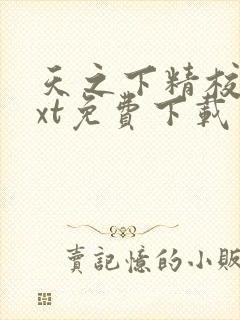 天之下精校
xt免費下載
賣記憶的小販